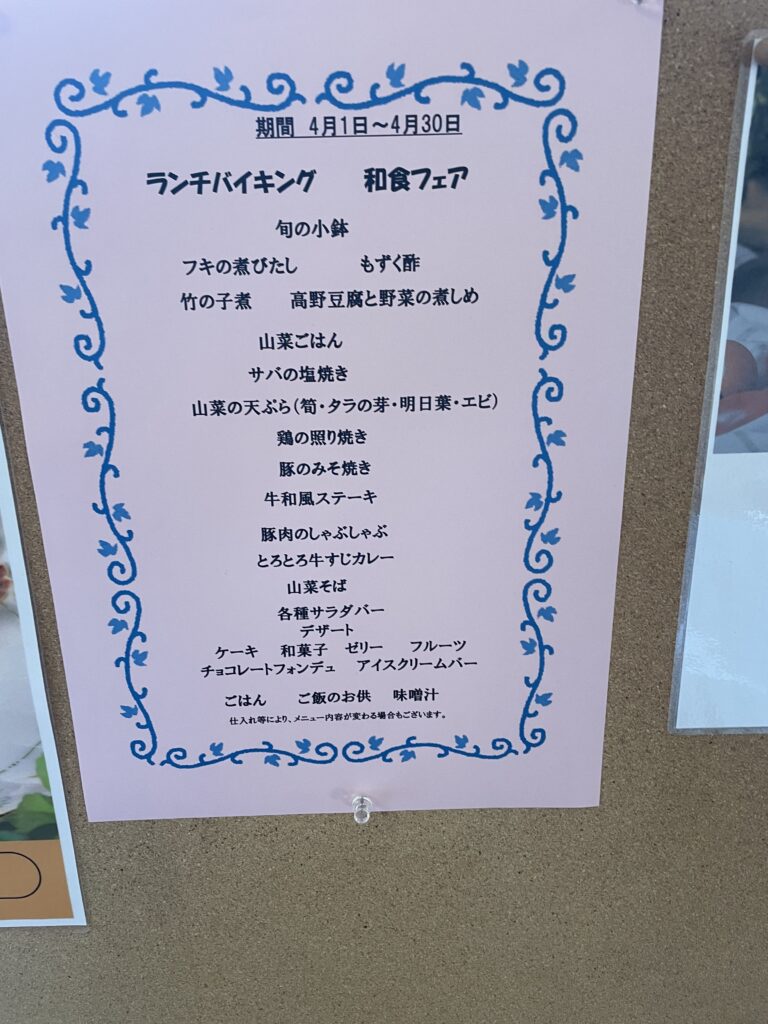 期間 4月1日～4月30日
ランチバイキング 和食フェア
旬の小鉢
フキの煮びたし もずく酢
竹の子煮 高野豆腐と野菜の煮しめ
山菜ごはん
サバの塩焼き
山菜の天ぷら(筍・タラの芽・明日葉・エビ)
鶏の照り焼き
豚のみそ焼き
牛和風ステーキ
豚肉のしゃぶしゃぶ
とろとろ牛すじカレー
山菜そば
各種サラダバー
デザート
ケーキ 和菓子 ゼリー フルーツ
チョコレートフォンデュ アイスクリームバー
ごはん ご飯のお供 味噌汁
仕入れ等により、メニュー内容が変わる場合もございます。